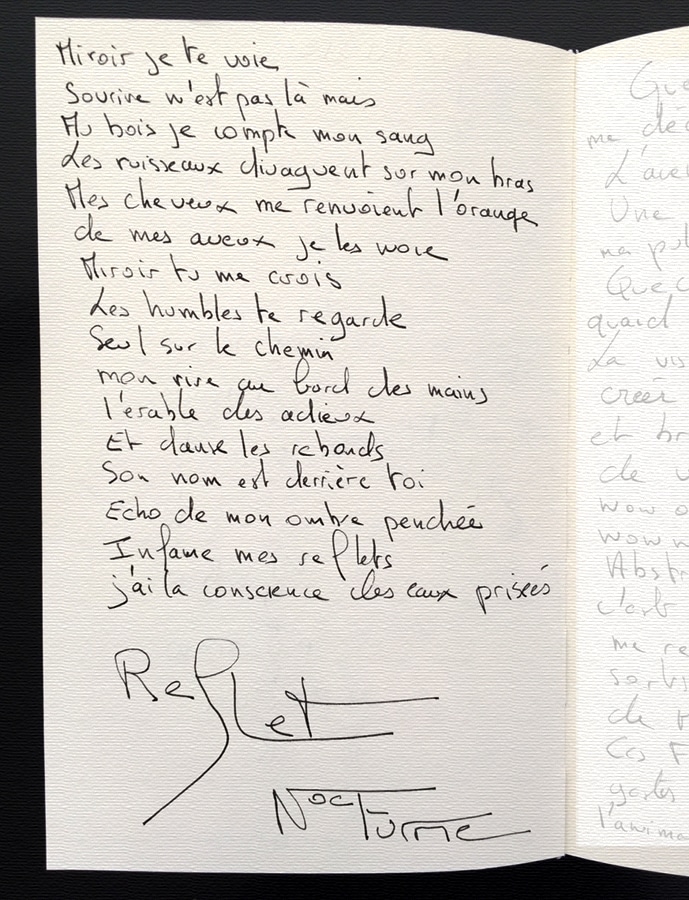 Miroir je te voie
Sourire n'est pas là mais
Au bois je compte mon sang
Les ruisseaux divaguent sur mon bras
Mes cheveux me renvoient l'orange
de mes aveux je les noie
Miroir tu me crois
Les humbles te regarde
Seul sur le chemin
mon rire au bord des mains
l'érable des adieux
Et danse les rebonds
Son nom est derrière toi
Echo de mon ombre penchée
Infame mes reflets
j'ai la conscience des eaux prisées
Reflet
Nocturne
me
L'
Une
ma
quand
La
créer
et
de
wow
wow
me
de